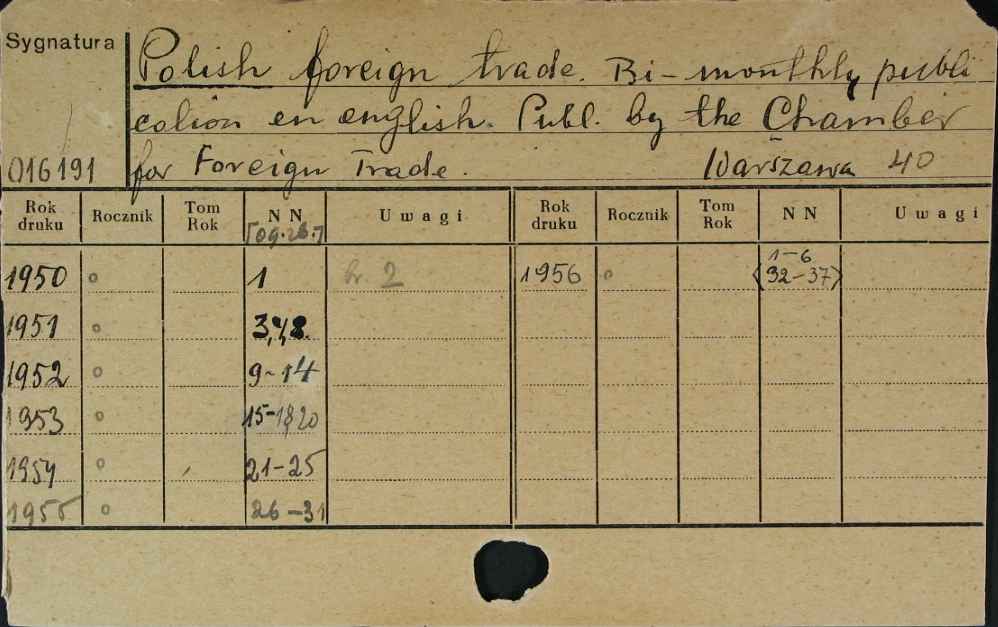 Sygnatura
Polish foreign trade. Bi-monthly publi
cation en english. Publ. by the Chamber
016191 for Foreign Trade. Warszawa 40
Rok druku Rocznik Tom Rok N N [og.zb.] Uwagi Rok druku Rocznik Tom Rok N N Uwagi
1950 1 2 1956 1-6 (32-37)
1951 3,
1952 9-14
1953 15-18, 20
1954 21-25
1955 26-31